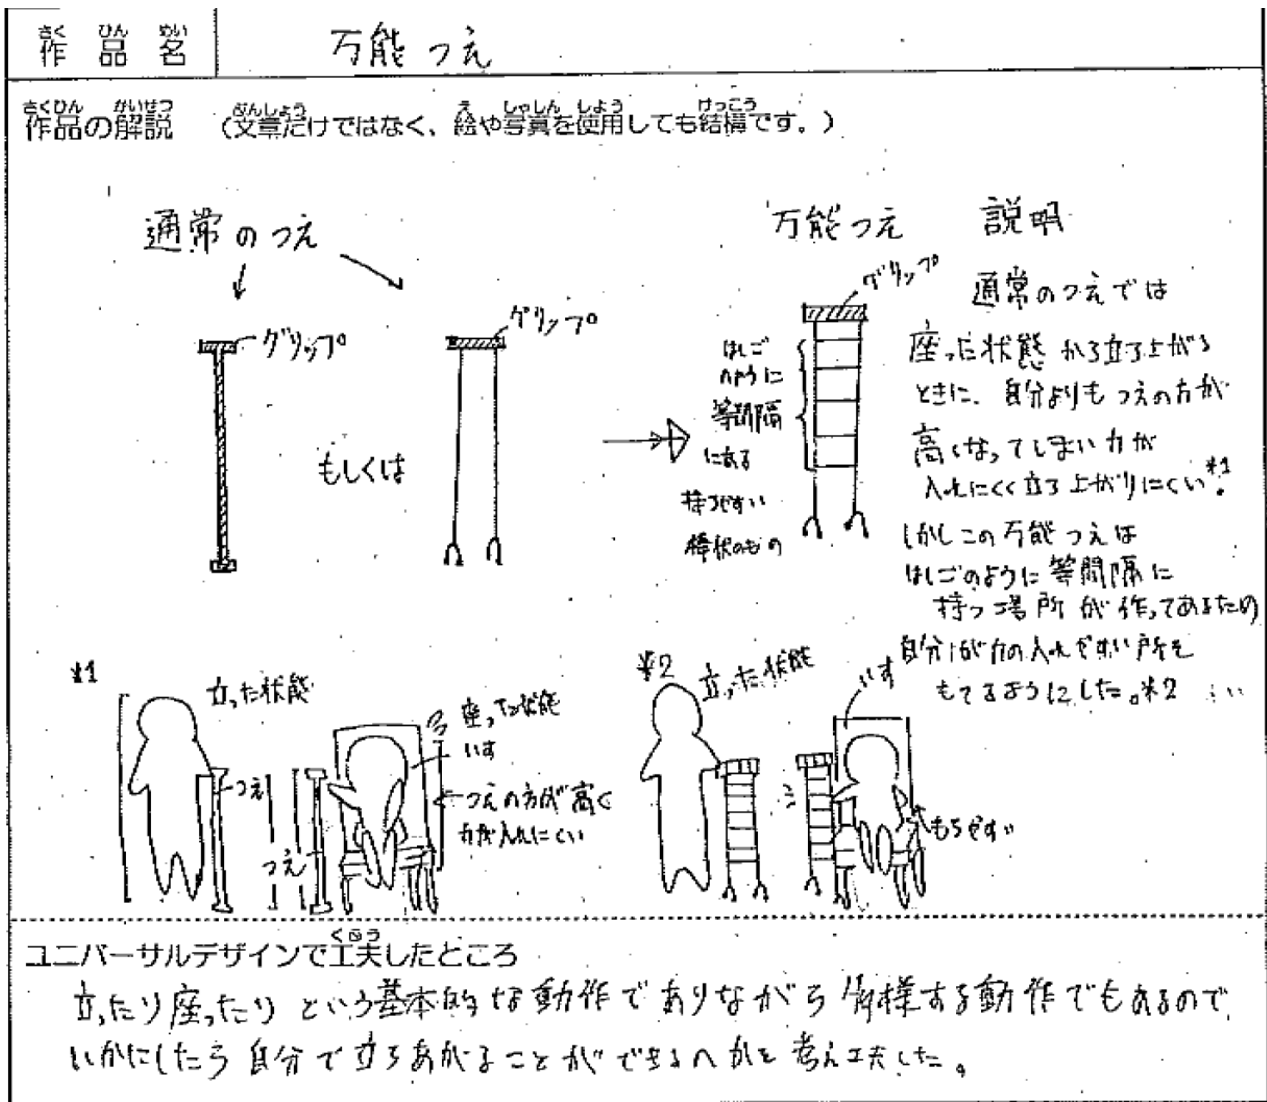 作品名
さくひんめい
万能つえ
作品の解説 (文章だけではなく、絵や写真を使用しても結構です。)
さくひん かいせつ ぶんしょう え しゃしん しよう けっこう
通常のつえ
グリップ
もしくは
グリップ
万能つえ 説明
グリップ
はしご
のように
等間隔
にある
持つやすい
棒状のもの
通常のつえでは
座った状態から立ち上がる
ときに、自分よりもつえの方が
高くなってしまい力が
入れにくく立ち上がりにくい*1。
しかしこの万能つえは
はしごのように等間隔に
持つ場所が作ってあるため
自分が力の入れやすい所を
もてるようにした。*2
*1
立った状態
つえ
つえ
座った状態
いす
つえの方が高く
力が入れにくい
*2
立った状態
いす
もちやすい
ユニバーサルデザインで工夫したところ
くふう
立ったり座ったりという基本的な動作でありながら する動作でもあるので、
いかにしたら自分で立ちあがることができるのかを考え工夫した。